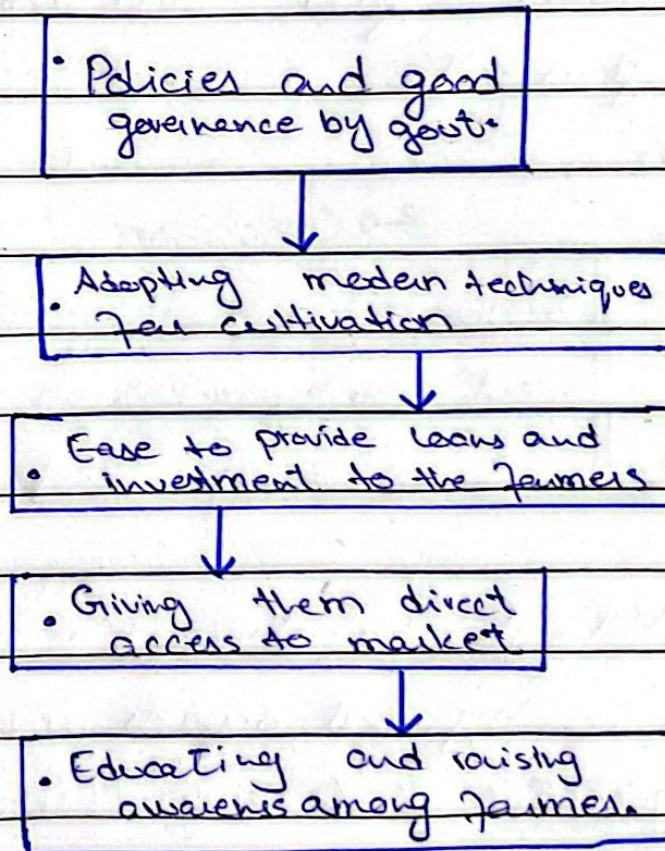 • Policies and good
governence by govt.
Adopting modern techniques
• for cultivation
Ease to provide loans and
• investment to the farmers
• Giving them direct
access to market
• Educating and raising
awarenes among farmer.